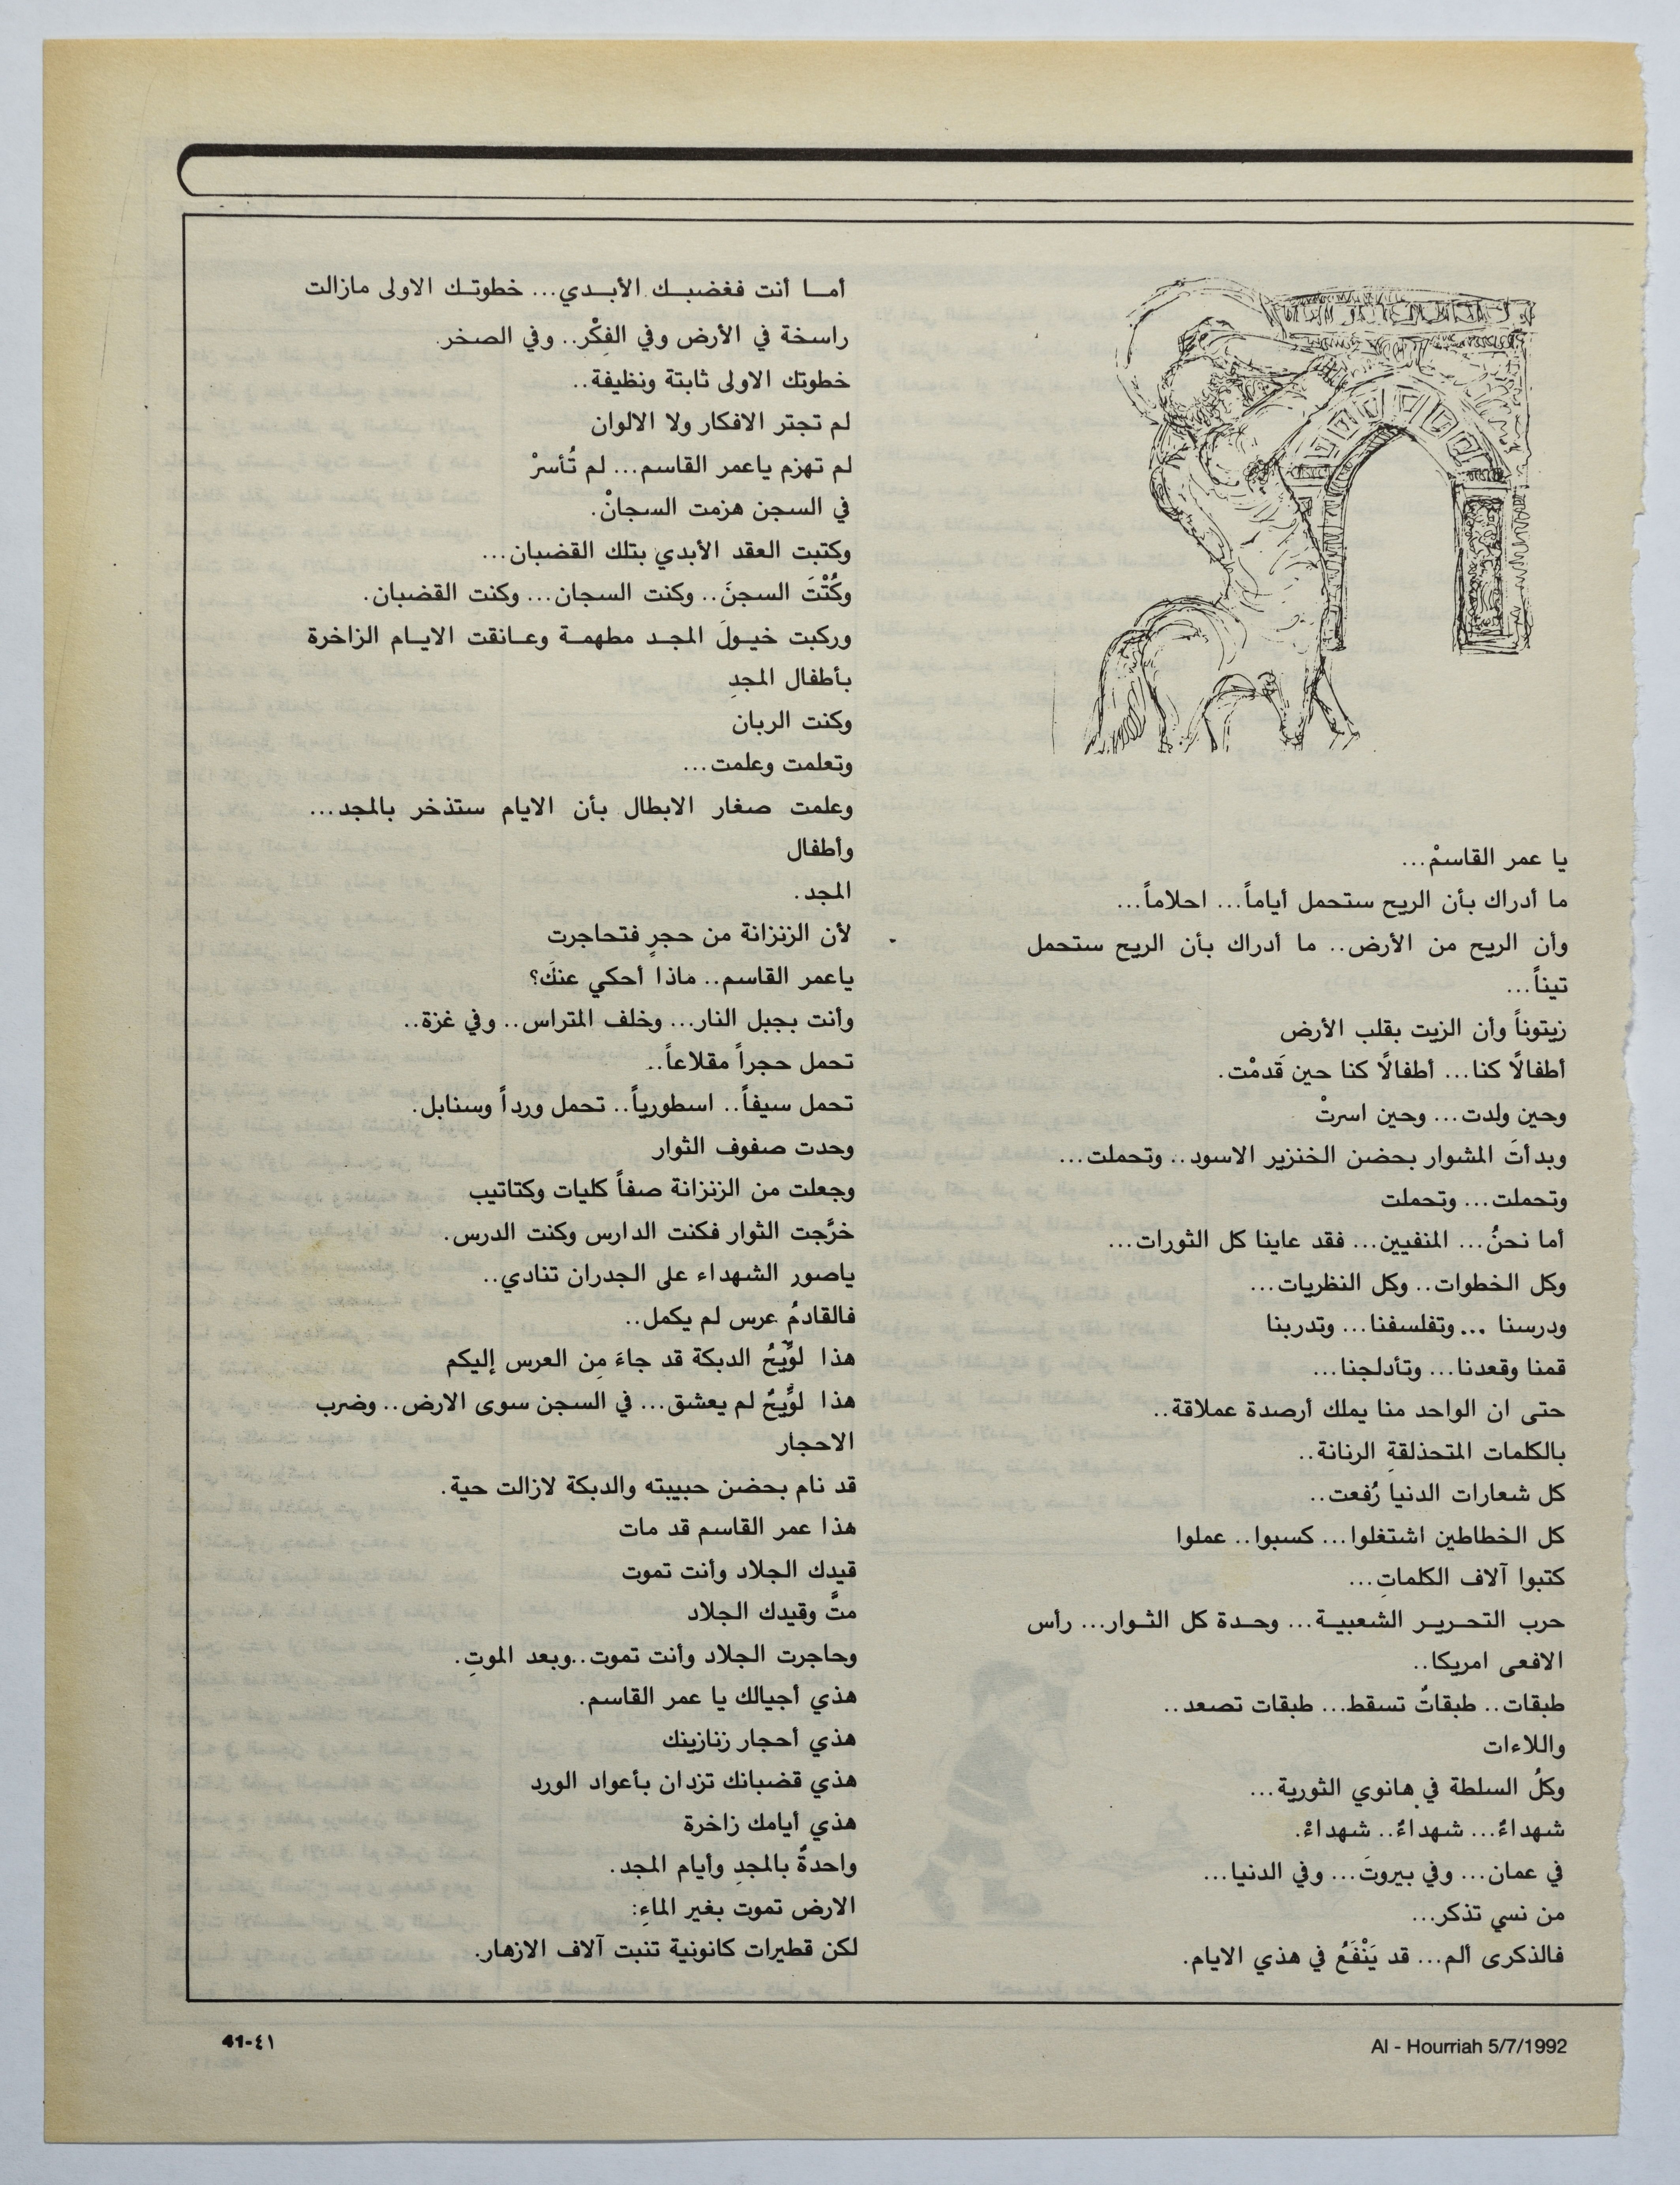 يا عمر القاسمْ...
ما أدراك بأن الريح ستحمل أياماً... احلاماً...
وأن الريح من الأرض.. ما أدراك بأن الريح ستحمل
تيناً...
زيتوناً وأن الزيت بقلب الأرض
أطفالًا كنا... أطفالًا كنا حين قَدمْت.
وحين ولدت... وحين اسرتْ
وبدأتَ المشوار بحضن الخنزير الاسود.. وتحملت...
وتحملت... وتحملت
أما نحنُ... المنفيين... فقد عاينا كل الثورات...
وكل الخطوات.. وكل النظريات...
ودرسنا ... وتفلسفنا... وتدربنا
قمنا وقعدنا... وتأدلجنا...
حتى ان الواحد منا يملك أرصدة عملاقة..
بالكلمات المتحذلقةِ الرنانة..
كل شعارات الدنيا رُفعت..
كل الخطاطين اشتغلوا... كسبوا.. عملوا
كتبوا آلاف الكلماتِ...
حرب التحرير الشعبية... وحدة كل الثوار... رأس
الافعى امريكا..
طبقات.. طبقاتٌ تسقط... طبقات تصعد..
واللاءات
وكلُ السلطة في هانوي الثورية...
شهداءٌ... شهداءٌ.. شهداءْ.
في عمان... وفي بيروتَ... وفي الدنيا...
من نسي تذكر...
فالذكرى ألم... قد يَنْفَعُ في هذي الايام.
أما أنت فغضبك الأبدي... خطوتك الاولى مازالت
راسخة في الأرض وفي الفِكْر.. وفي الصخر.
خطوتك الاولى ثابتة ونظيفة..
لم تجتر الافكار ولا الالوان
لم تهزم ياعمر القاسم... لم تُأسرْ
في السجن هزمت السجانْ.
وكتبت العقد الأبدي بتلك القضبان...
وكُنْتَ السجنَ.. وكنت السجان... وكنت القضبان.
وركبت خيولَ المجد مطهمة وعانقت الايام الزاخرة
بأطفال المجدِ
وكنت الربان
وتعلمت وعلمت...
وعلمت صغار الابطال بأن الايام ستذخر بالمجد...
وأطفال
المجد.
لأن الزنزانة من حجرٍ فتحاجرت
ياعمر القاسم.. ماذا أحكي عنكَ؟
وأنت بجبل النار... وخلف المتراس.. وفي غزة..
تحمل حجراً مقلاعاً..
تحمل سيفاً.. اسطورياً.. تحمل ورداً وسنابل.
وحدت صفوف الثوار
وجعلت من الزنزانة صفاً كليات وكتاتيب
خرَّجت الثوار فكنت الدارس وكنت الدرس.
ياصور الشهداء على الجدران تنادي..
فالقادمُ عرس لم يكمل..
هذا لوِّيحُ الدبكة قد جاءَ مِن العرس إليكم
هذا لوِّيحٌ لم يعشق... في السجن سوى الارض.. وضرب
الاحجار
قد نام بحضن حبيبته والدبكة لازالت حية.
هذا عمر القاسم قد مات
قيدك الجلاد وأنت تموت
متَّ وقيدك الجلاد
وحاجرت الجلاد وأنت تموت..وبعد الموتِ.
هذي أجيالك يا عمر القاسم.
هذي أحجار زنازينك
هذي قضبانك تزدان بأعواد الورد
هذي أيامك زاخرة
واحدةٌ بالمجدِ وأيام المجد.
الارض تموت بغير الماءِ:
لكن قطيرات كانونية تنبت آلاف الازهار.
Al - Hourriah 5/7/1992
41-٤١